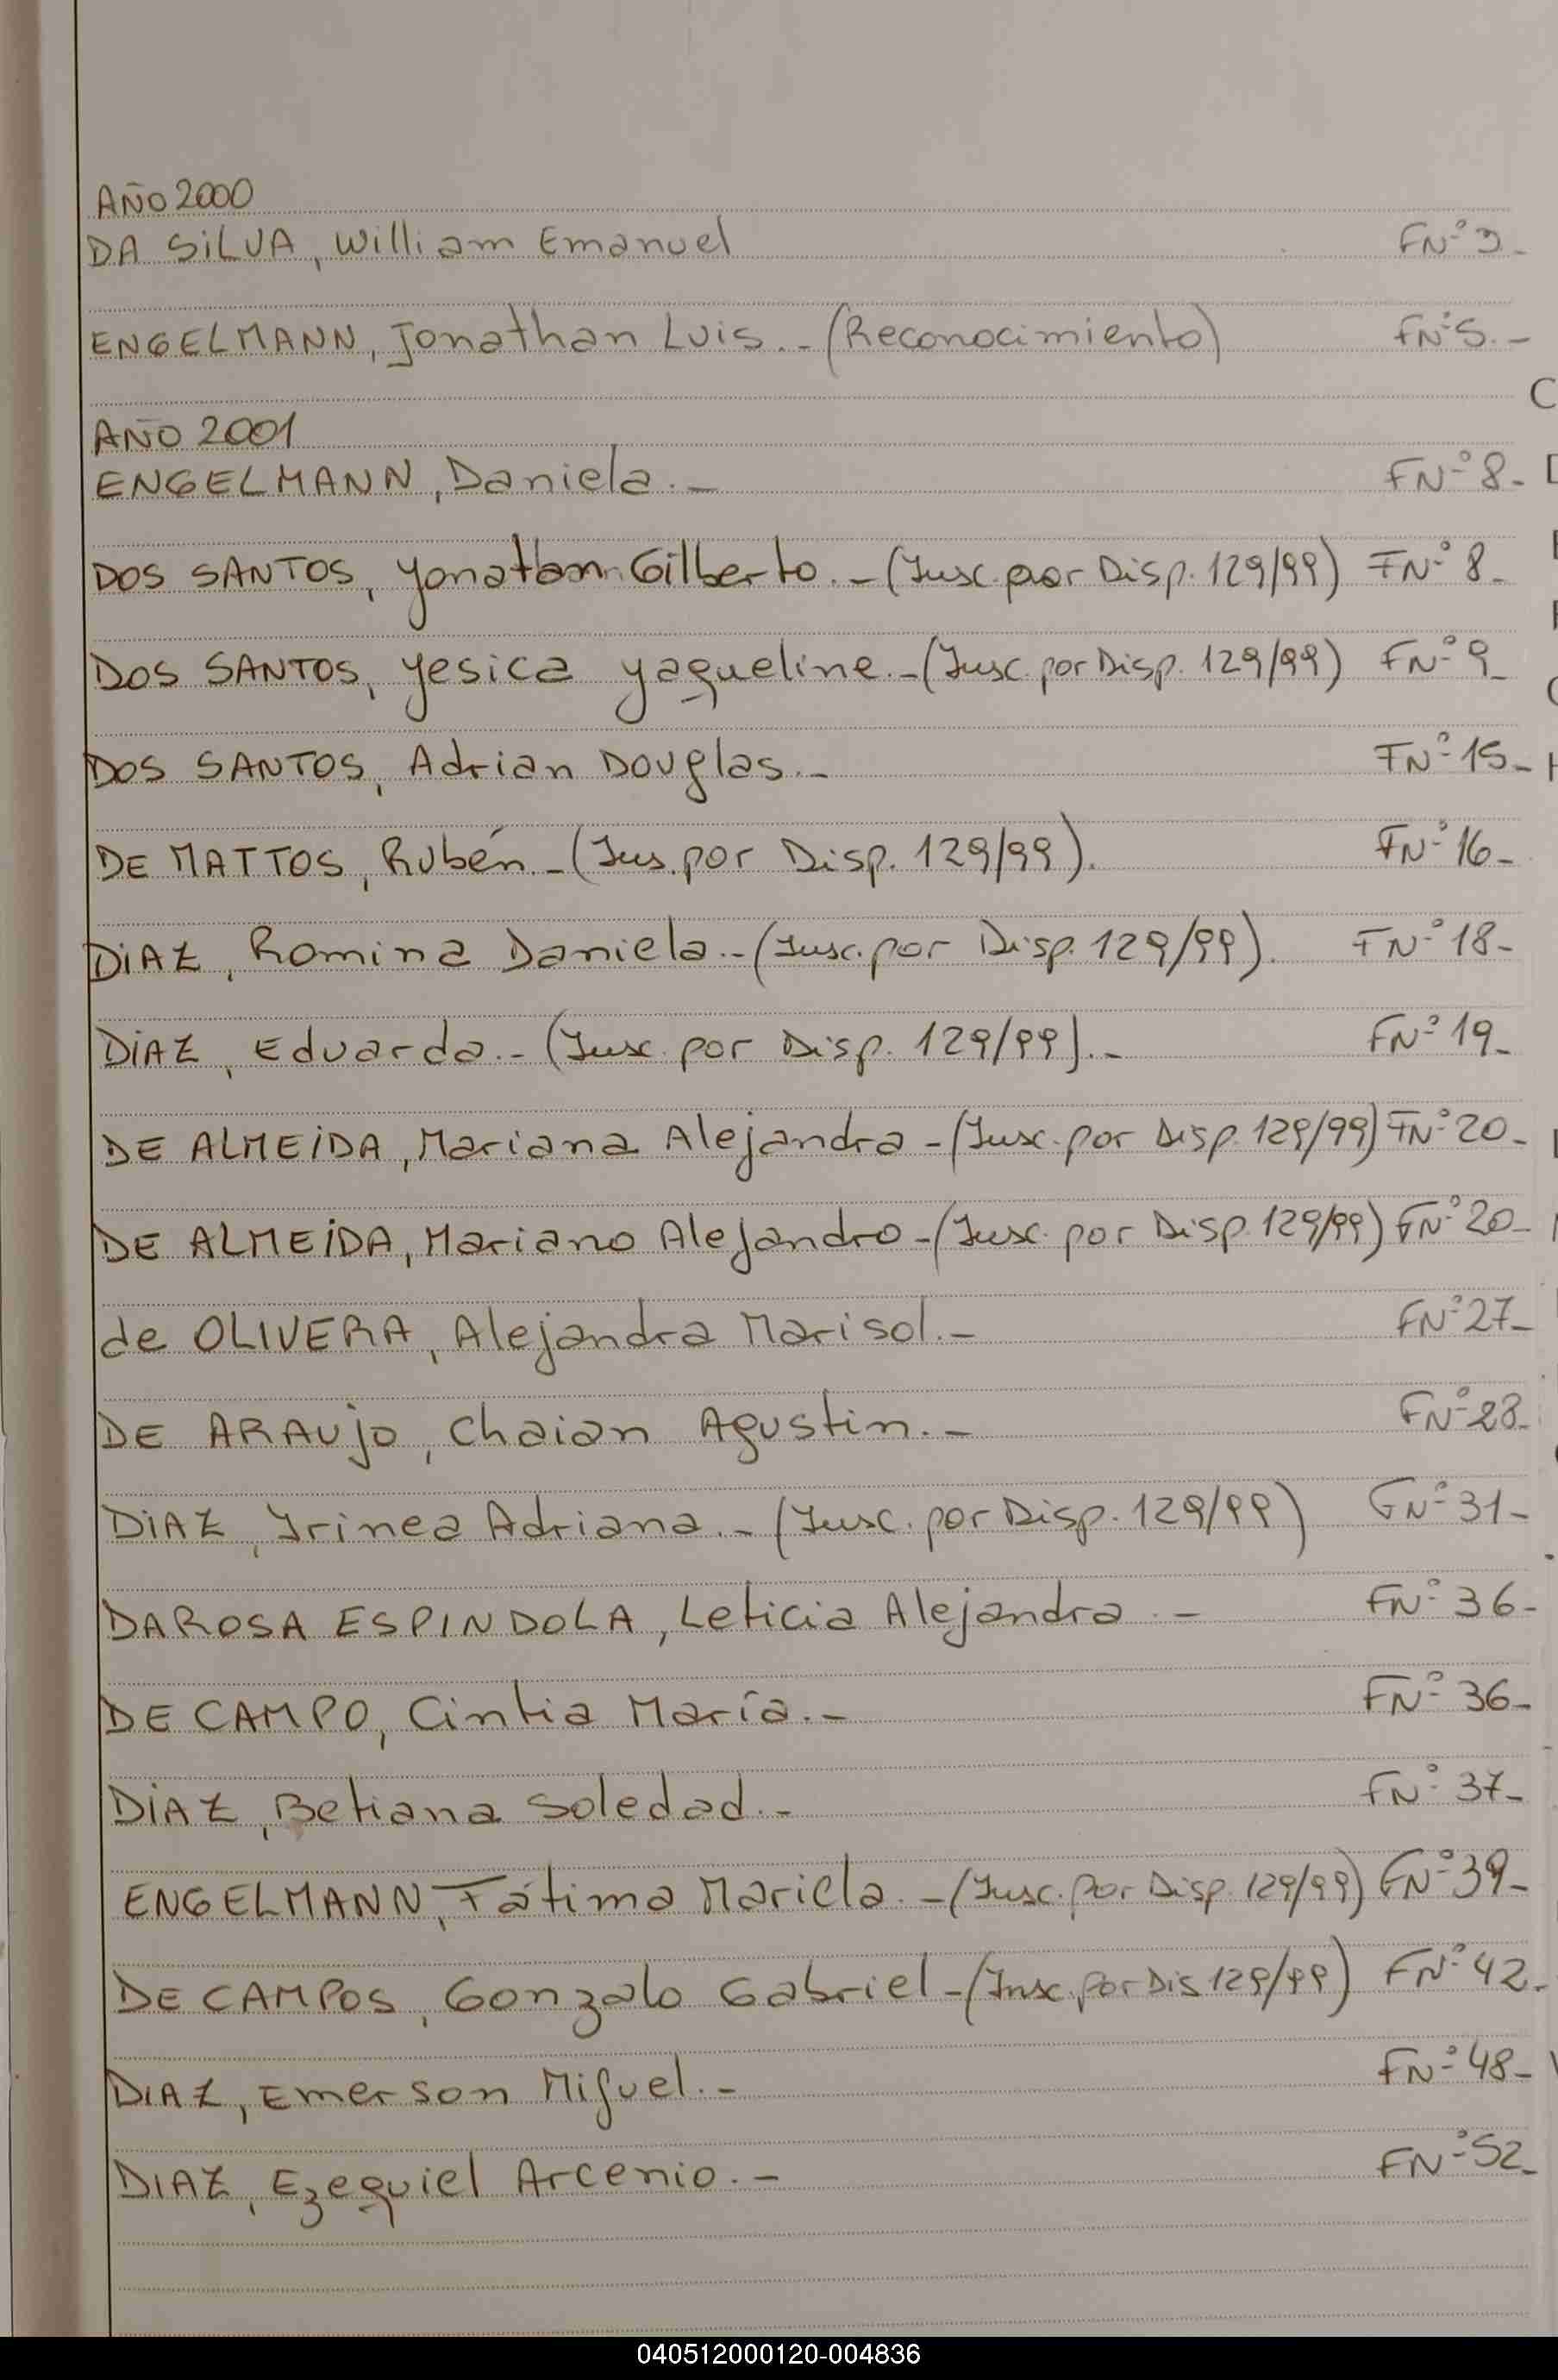 AÑO 2000
DA SiLVA, William Emanuel FNº 3_
ENGELMANN, Jonathan Luis._ (Reconocimiento) FNº 5._
AÑO 2001
ENGELMANN, Daniela._ FNº 8_
DOS SANTOS, Yonatan Gilberto._ (Insc. por Disp. 129/99) FNº 8_
DOS SANTOS, Yesica Yaqueline._ (Insc. por Disp. 129/99) FNº 9_
DOS SANTOS, Adrian Douglas._ FNº 15_
DE MATTOS, Rubén._ (Ins. por Disp. 129/99). FNº 16_
DiAZ, Romina Daniela._ (Insc. por Disp. 129/99). FNº 18_
DiAZ, Eduardo._ (Insc. por Disp. 129/99)._ FNº 19_
DE ALMEiDA, Mariana Alejandra _ (Insc. por Disp. 129/99) FNº 20_
DE ALMEiDA, Mariano Alejandro _ (Insc. por Disp. 129/99) FNº 20_
de OLIVERA, Alejandra Marisol._ FNº 27_
DE ARAUjO, Chaian Agustin._ FNº 28_
DiAZ, Irinea Adriana._ (Insc. por Disp. 129/99) FNº 31_
DAROSA ESPINDOLA, Leticia Alejandra._ FNº 36_
DE CAMPO, Cintia María._ FNº 36_
DiAZ, Betiana Soledad._ FNº 37_
ENGELMANN, Fátima Mariela._ (Insc. por Disp. 129/99) FNº 39_
DE CAMPOS, Gonzalo Gabriel _ (Insc. por Dis 129/99) FNº 42_
DIAZ, Emerson Miguel._ FNº 48_
DIAZ, Ezequiel Arcenio._ FNº 52_
040512000120-004836